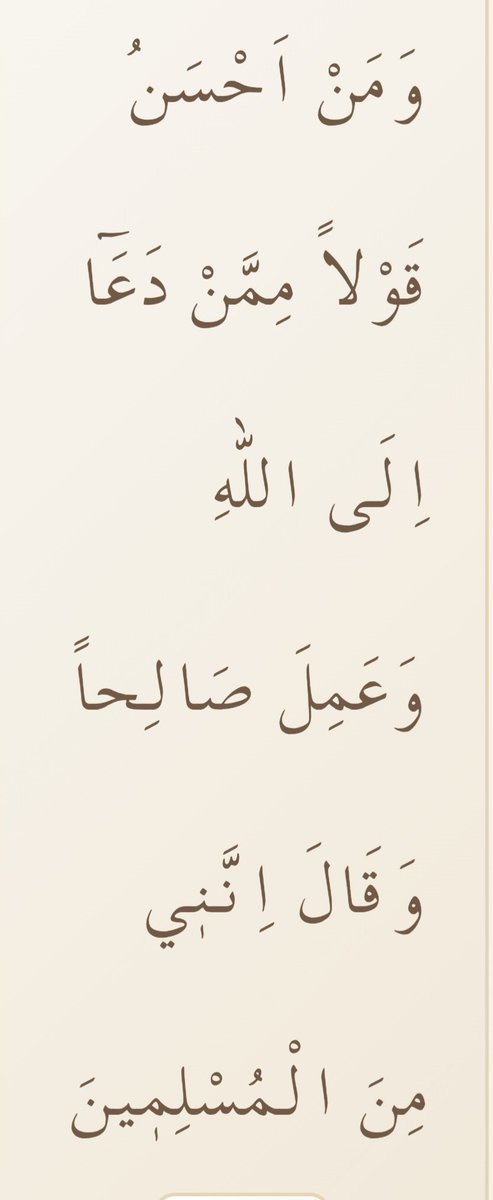 وَ مَنْ اَحْسَنُ
قَوْلاً مِمَّنْ دَعَآ
اِلَى اللّٰهِ
وَعَمِلَ صَالِحاً
وَ قَالَ اِنَّنٖي
مِنَ الْمُسْلِمٖينَ